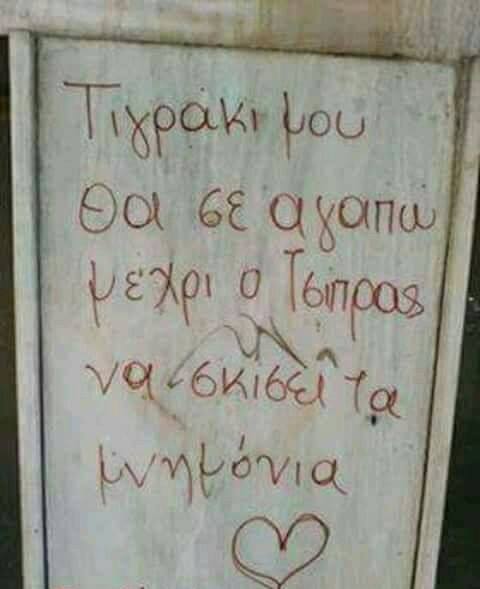 Τιγράκι μου
Θα σε αγαπω
μέχρι ο Τσιπρας
να σκισει τα
μνημόνια